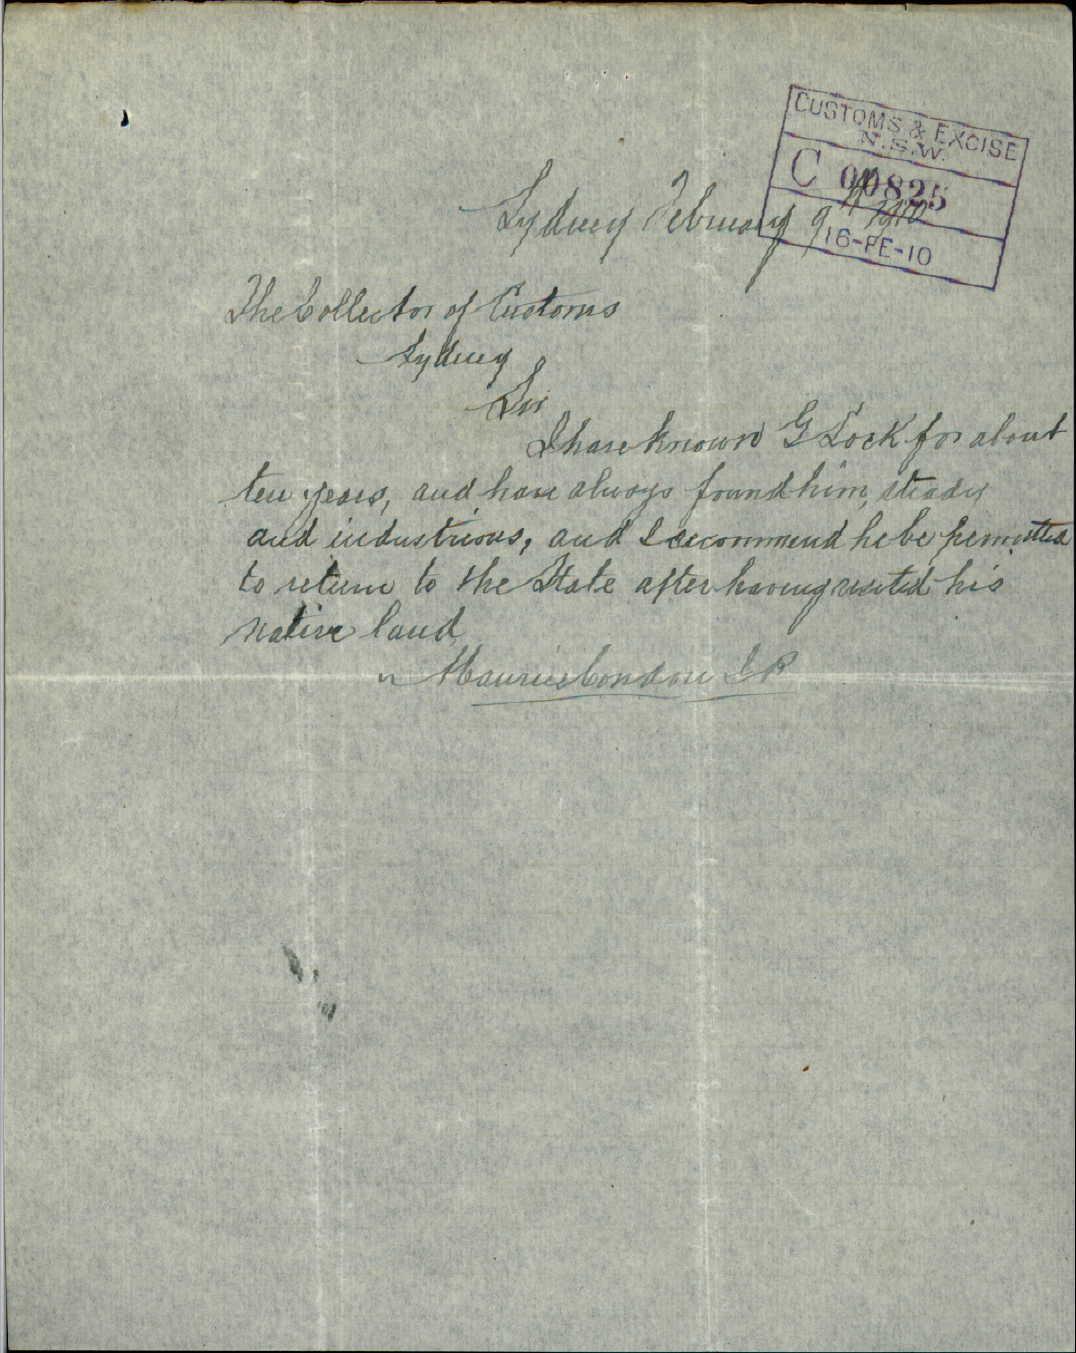 CUSTOMS & EXCISE
N.S.W.
C 00825
16-FE-10
Sydney February 9th 1910
The Collector of Customs
Sydney
Sir
I have known G Lock for about
ten years, and have always found him, steady
and industrious, and I recommend he be permitted
to return to the State after having visited his
native land
Maurice Condon J P